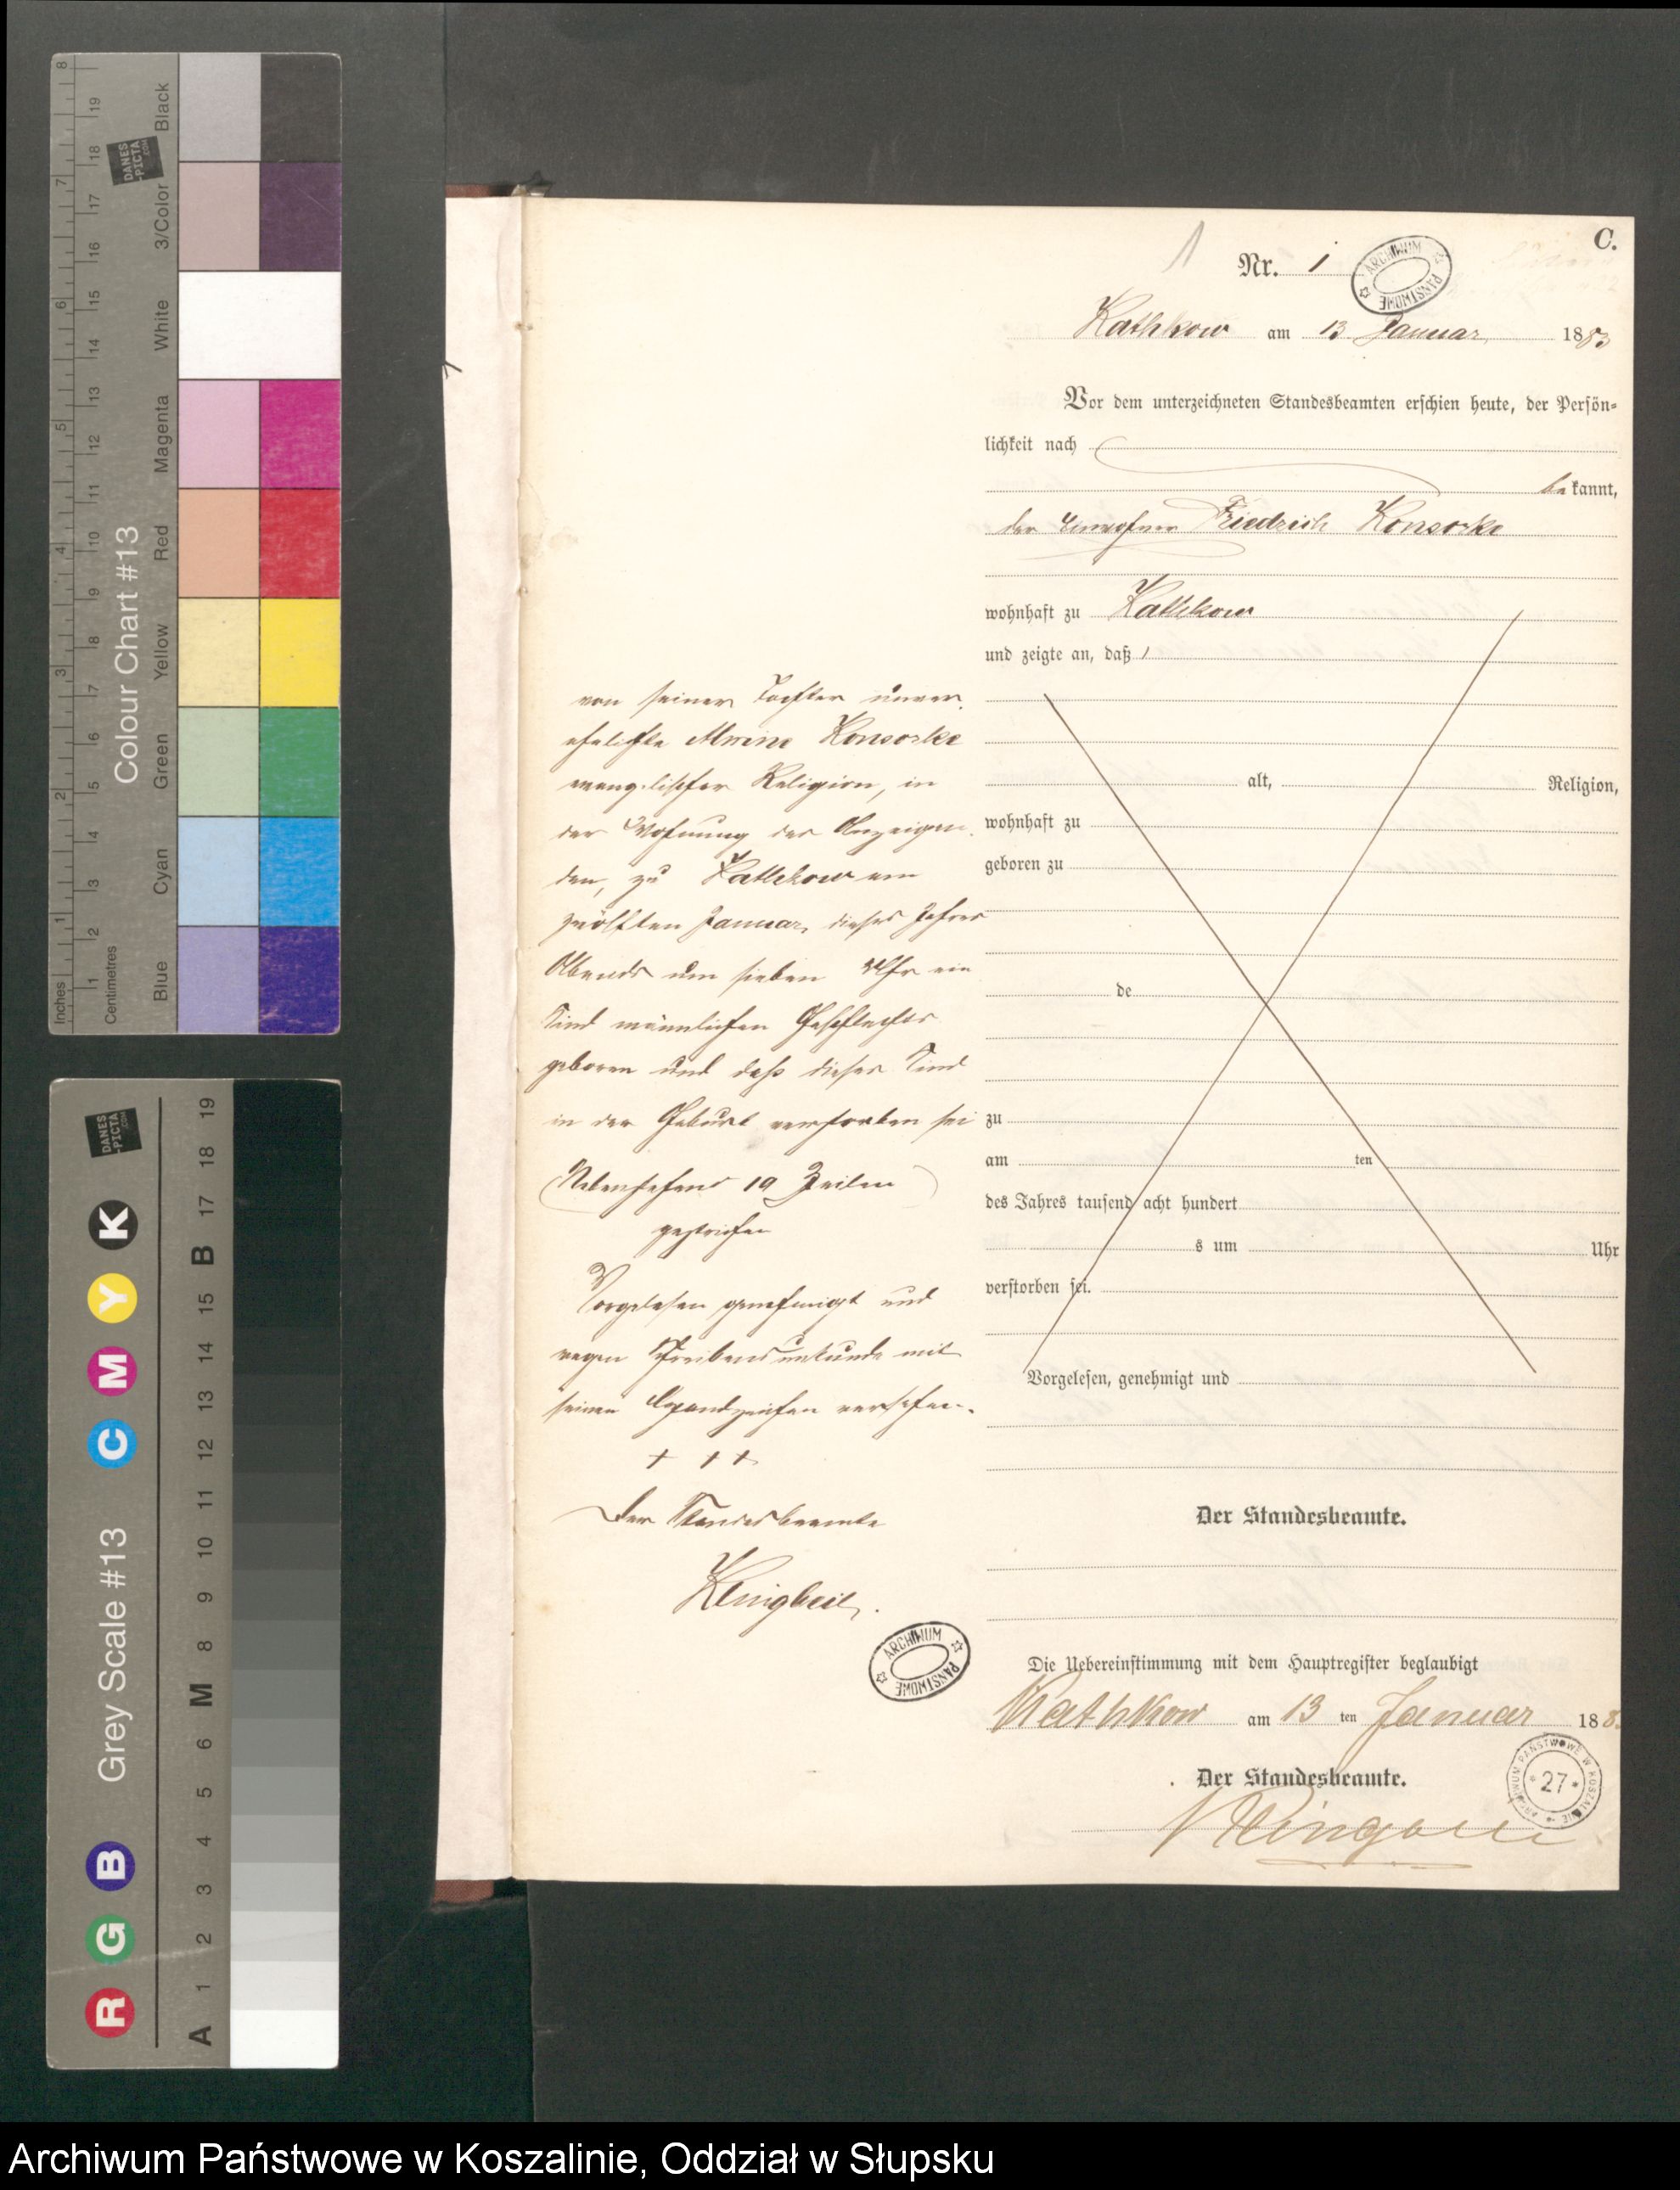 C.
1
Nr. 1
ARCHIWUM PAŃSTWOWE
Kathkow am 13 Januar 1883
Vor dem unterzeichneten Standesbeamten erschien heute, der Persön-
lichkeit nach
be kannt,
der Einwohner Friedrich Konsorke
wohnhaft zu Kathkow
und zeigte an, daß
alt, Religion,
wohnhaft zu
geboren zu
de
zu
am ten
des Jahres tausend acht hundert
s um Uhr
verstorben sei.
Vorgelesen, genehmigt und
Der Standesbeamte.
von seiner Tochter unver
ehelichte Konsorke
evangelischer Religion, in
der Wohnung des Anzeigen
den, zu Kathkow am
zwölften Januar dieses Jahres
Abends um sieben Uhr ein
Kind männlichen Geschlechts
geboren und daß dieses Kind
in der Geburt verstorben sei
(Nebenstehend 19 Zeilen)
gestrichen
Vorgelesen genehmigt und
wegen Schreibensunkunde mit
seinen Handzeichen versehen.
+ + +
Der Standesbeamte
ARCHIWUM PAŃSTWOWE
Die Uebereinstimmung mit dem Hauptregister beglaubigt
Kathkow am 13 ten Januar 188
Der Standesbeamte.
ARCHIWUM PAŃSTWOWE W KOSZALINIE
* 27 *
Colour Chart #13
DANES
-PICTA
.COM
Inches 1 2 3 4 5 6 7 8
Centimetres 1 2 3 4 5 6 7 8 9 10 11 12 13 14 15 16 17 18 19
Blue Cyan Green Yellow Red Magenta White 3/Color Black
Grey Scale #13
DANES
-PICTA
.COM
R G B C M Y K
A 1 2 3 4 5 6 M 8 9 10 11 12 13 14 15 B 17 18 19
Archiwum Państwowe w Koszalinie, Oddział w Słupsku